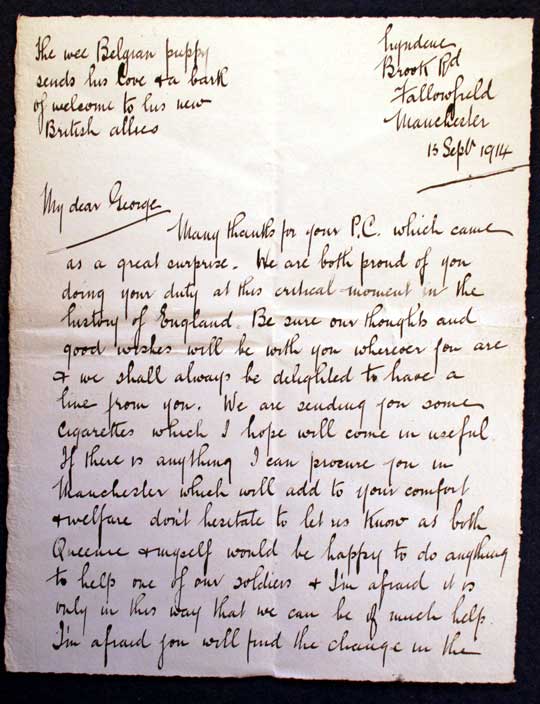 The wee Belgian puppy
sends his love & a bark
of welcome to his new
British allies
Lyndene
Brook Rd
Fallowfield
Manchester
13 Sept 1914
My dear George
Many thanks for your P.C. which came
as a great surprise. We are both proud of you
doing your duty at this critical moment in the
history of England. Be sure our thoughts and
good wishes will be with you wherever you are
& we shall always be delighted to have a
line from you. We are sending you some
cigarettes which I hope will come in useful.
If there is anything I can procure you in
Manchester which will add to your comfort
& welfare don't hesitate to let us know as both
Queenie & myself would be happy to do anything
to help one of our soldiers & I'm afraid it is
only in this way that we can be of much help.
I'm afraid you will find the change in the